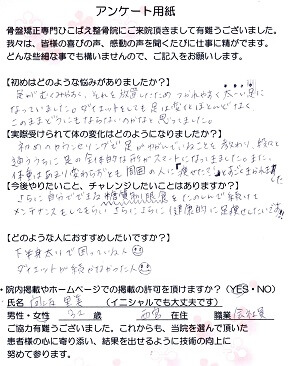 アンケート用紙
骨盤矯正専門ひこばえ整骨院にご来院頂きまして有難うございました。
我々は、皆様の喜びの声、感動の声を聞くたびに仕事に精がでます。
どんな些細な事でも構いませんので、ご記入をお願いします。
【初めはどのような悩みがありましたか？】
足がむくみやすく、それを放置していたため つかれやすく太〜い足に
なっていました。ダイエットをしても足は変化ほとんどなく
このままどうにもならないのかなと思ってました。
【実際受けられて体の変化はどのようになりましたか？】
初めのカウンセリングで足が
通ううちに足の全体的な形がスマートになってきました。また、
体重はあまり変わらずとも周囲の人に痩せた？と
【今後やりたいこと、チャレンジしたいことはありますか？】
さらに自分でできる糖質制限食をたのしんで続けて
メンテナンスもしてもらい さらにさらに健康的に足痩せしたいです
【どのような人におすすめしたいですか？】
下半身太りで困っている人
ダイエットが続かなかった人
・院内掲載やホームページでの掲載の許可を頂けますか？（YES・NO）
氏名 （イニシャルでも大丈夫です）
男性・女性 32歳 在住 職業 会社員
ご協力有難うございました。これからも、当院を選んで頂いた
患者様の心に寄り添い、結果を出せるように技術の向上に
努めて参ります。